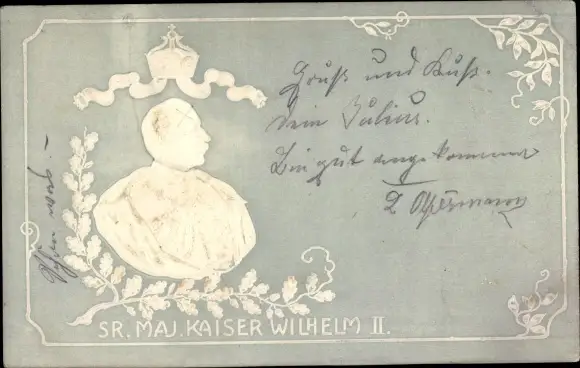 Gruß und Kuß.
Dein Julius.
Bin gut angekommen
SR. MAJ. KAISER WILHELM II.